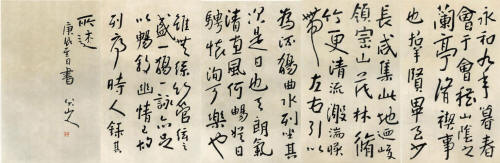 永和九年暮春
會于會稽山陰之
蘭亭脩禊事
也群賢畢至少
長咸集此地迺峻
領崇山茂林脩
竹更清流激湍暎
帶左右引以
為流觴曲水列坐其
次是日也天朗氣
清惠風和暢娛目
騁懷洵可樂也
雖無絲竹管絃之
盛一觴一詠亦足
以暢敘幽情已故
列序時人錄其
所述
庚辰至日書 八大山人